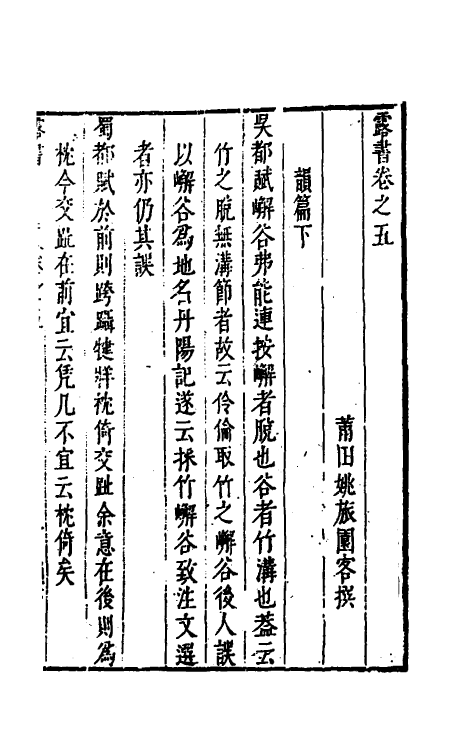 露書卷之五
莆田姚旅園客撰
韻篇下
吳都賦嶰谷弗能連按嶰者脫也谷者竹溝也葢云
竹之脫無溝節者故云伶倫取竹之嶰谷後人誤
以嶰谷為地名丹陽記遂云採竹嶰谷致注文選
者亦仍其誤
蜀都賦於前則跨躡犍牂枕倚交趾余意在後則為
枕今交趾在前宜云凭几不宜云枕倚矣